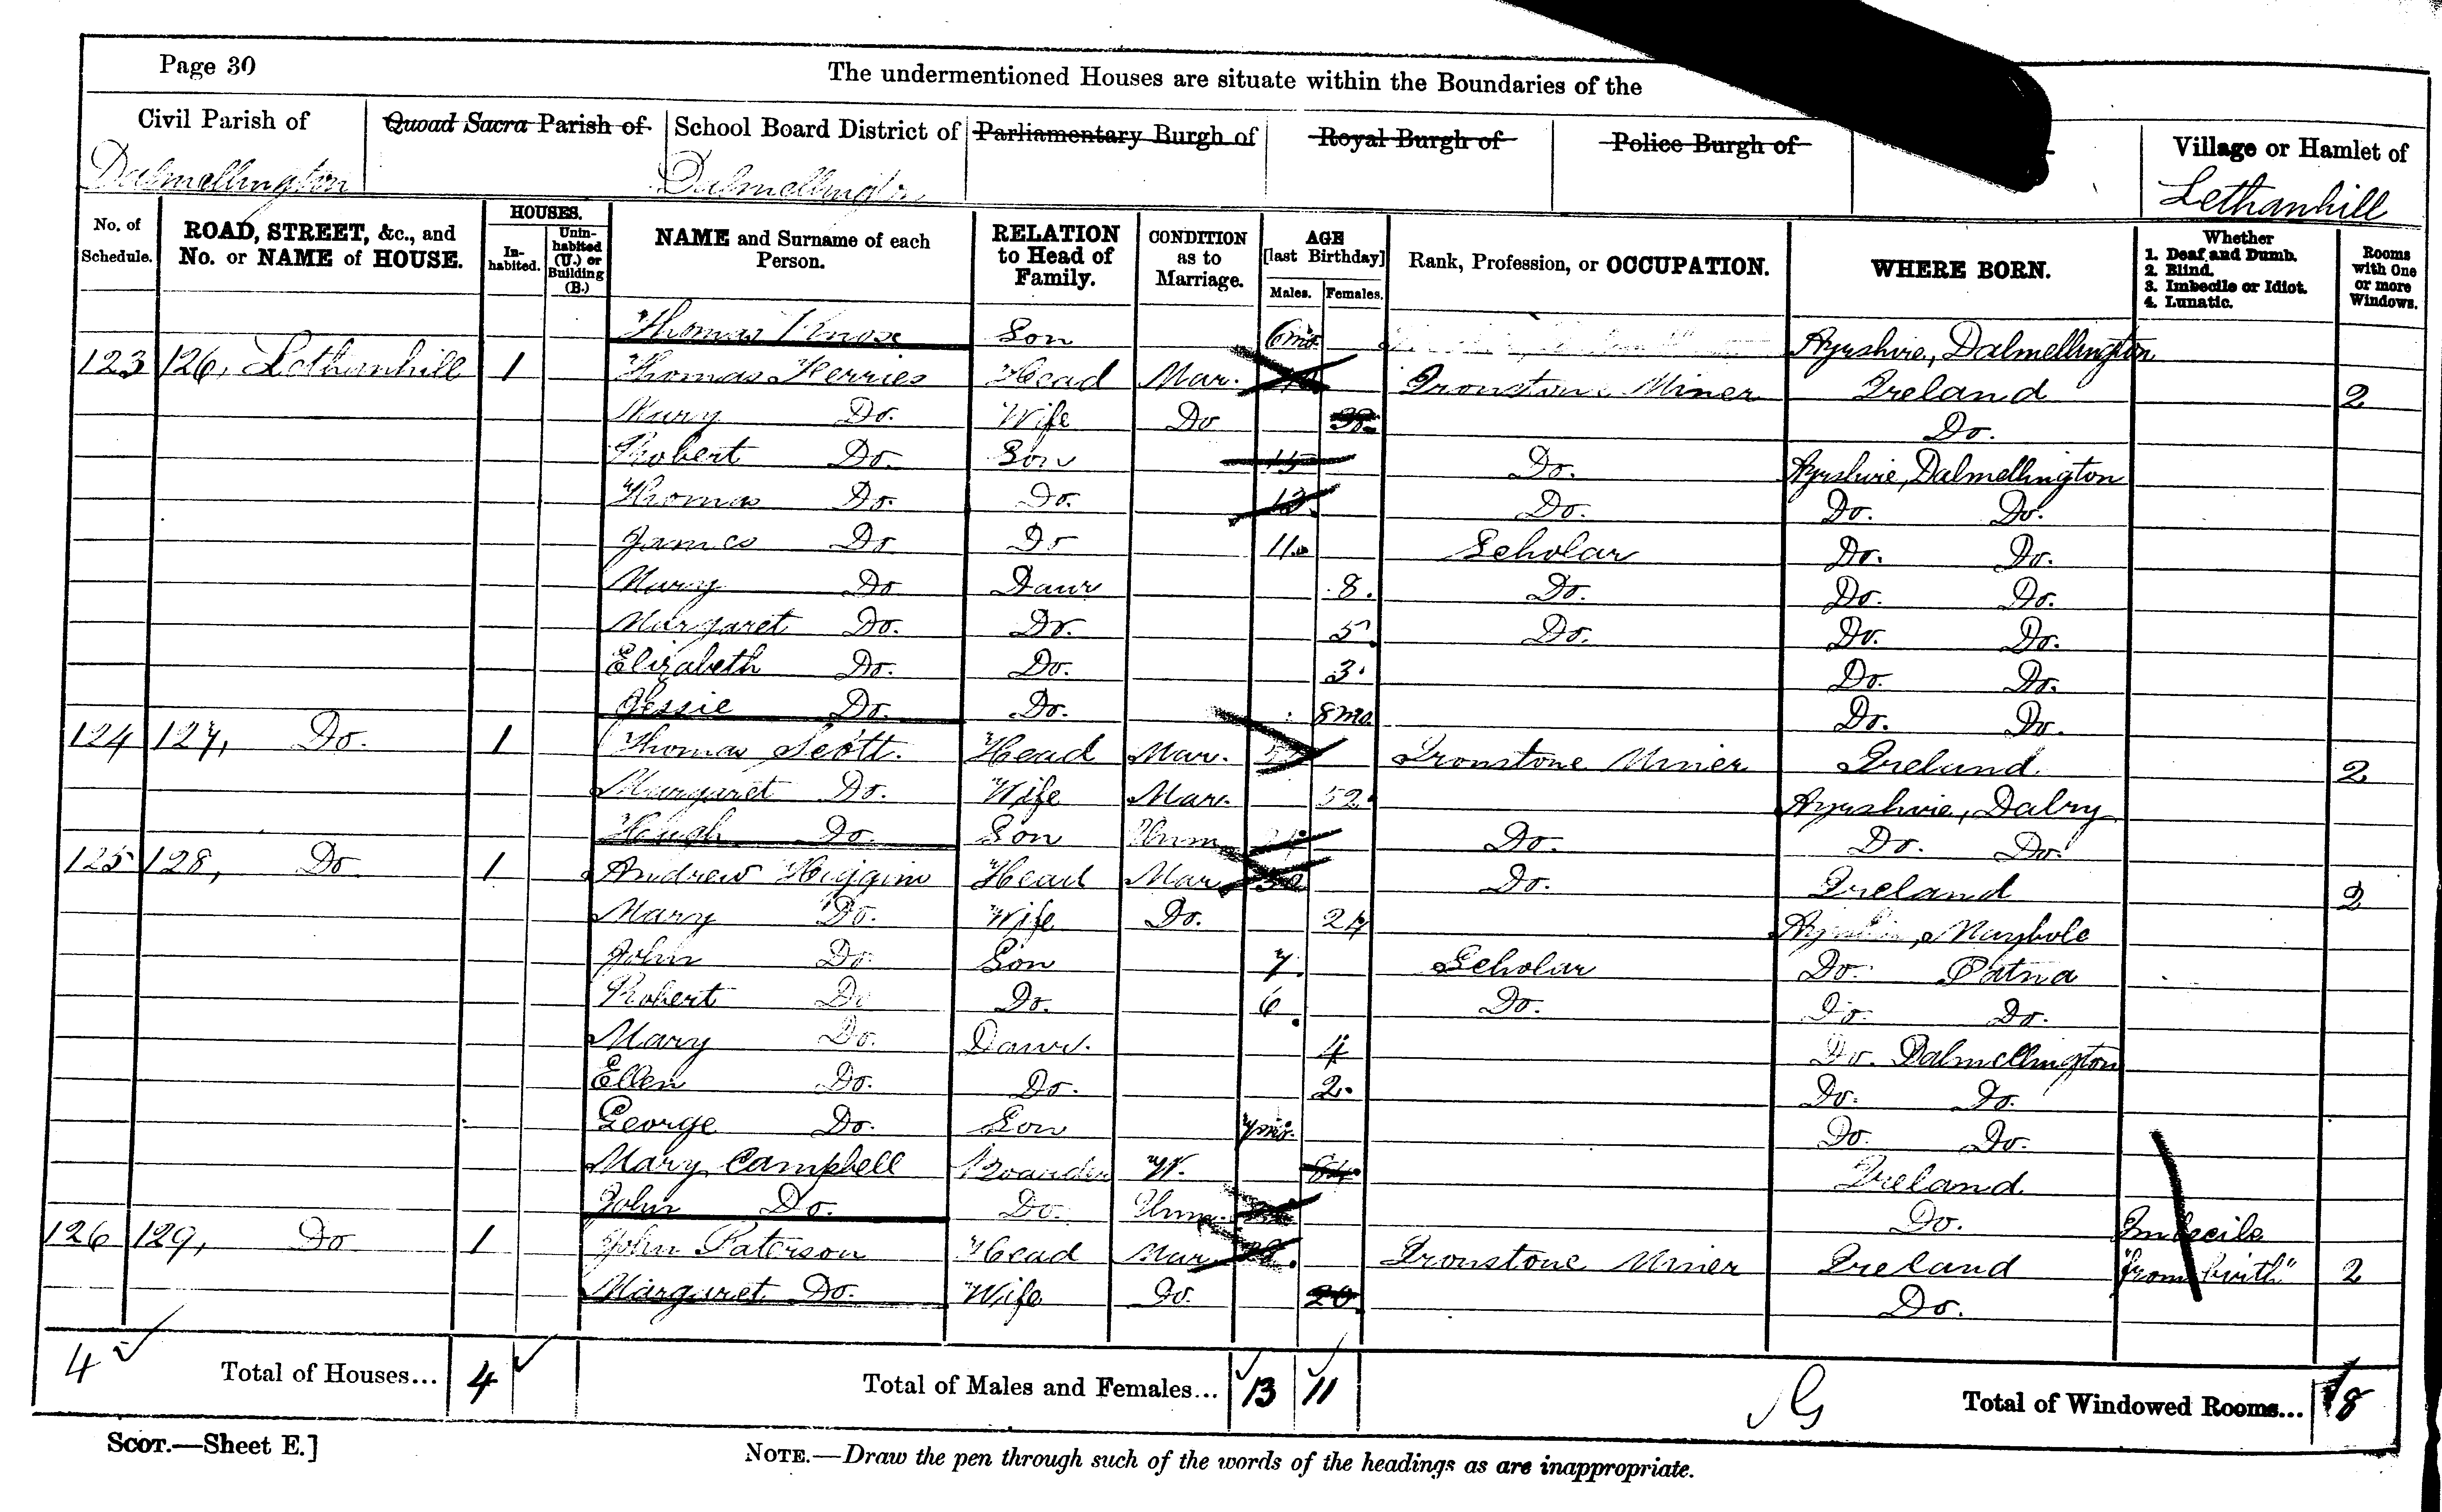 Page 30
The undermentioned Houses are situate within the Boundaries of the
Civil Parish of Quoad Sacra Parish of School Board District of Parliamentary Burgh of Royal Burgh of Police Burgh of Village or Hamlet of
Dalmellington Dalmellington Lethanhill
No. of Schedule. ROAD, STREET, &c., and No. or NAME of HOUSE. HOUSES. In-habited. Unin-habited (U.) or Building (B.) NAME and Surname of each Person. RELATION to Head of Family. CONDITION as to Marriage. AGE [last Birthday] Males. Females. Rank, Profession, or OCCUPATION. WHERE BORN. Whether 1. Deaf and Dumb. 2. Blind. 3. Imbecile or Idiot. 4. Lunatic. Rooms with One or more Windows.
Thomas Knox Son 6mo. Ayrshire, Dalmellington
123 126, Lethanhill 1 Thomas Herries Head Mar. Ironstone Miner Ireland 2
Mary Do. Wife Do Do.
Robert Do. Son 15 Do. Ayrshire, Dalmellington
Thomas Do. Do. 13. Do. Do. Do.
James Do Do 11. Scholar Do. Do.
Mary Do Daur 8. Do. Do. Do.
Margaret Do. Do. 5. Do. Do. Do.
Elizabeth Do. Do. 3. Do. Do.
Jessie Do. Do. 8mo. Do. Do.
124 127, Do. 1 Thomas Scott. Head Mar. Ironstone Miner Ireland. 2
Margaret Do. Wife Mar. 52. Ayrshire, Dalry
Hugh Do. Son Unm. Do. Do. Do.
125 128, Do 1 Andrew Higgins Head Mar Do. Ireland 2
Mary Do. Wife Do. 27 Ayrshire, Maybole
John Do. Son 7. Scholar Do. Patna
Robert Do Do. 6. Do. Do. Do.
Mary Do. Daur. 4 Do. Dalmellington
Ellen Do. Do. 2. Do. Do.
George Do. Son 7mo. Do. Do.
Mary Campbell Boarder W. 84. Ireland.
John Do. Do. Unm. Do. Imbecile
126 129, Do 1 John Paterson Head Mar. Ironstone Miner Ireland "from birth" 2
Margaret Do. Wife Do. 20 Do.
4 Total of Houses... 4 Total of Males and Females... 13 11 Total of Windowed Rooms... 8
SCOT.—Sheet E.]
NOTE.—Draw the pen through such of the words of the headings as are inappropriate.